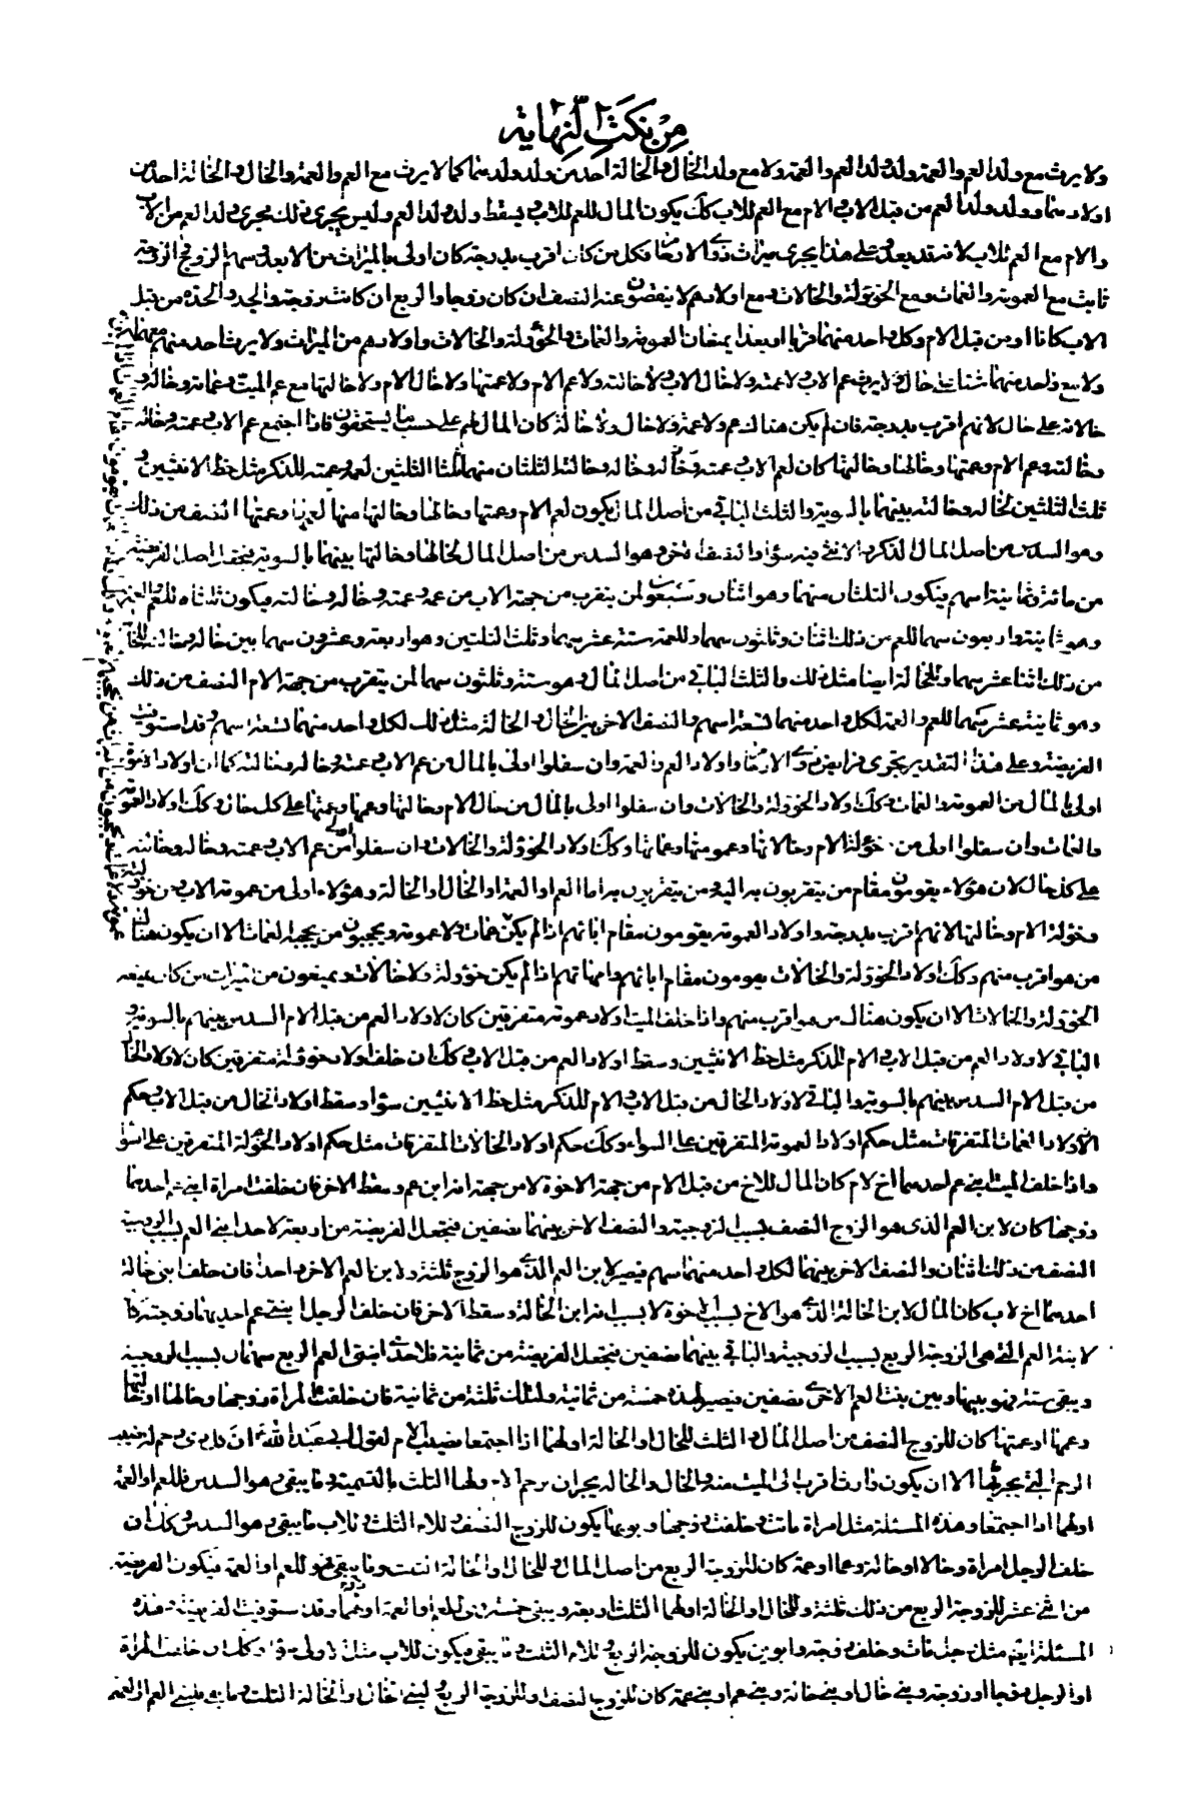 من نكت النهاية
ولا يرث مع ولد العم والعمة ولد ولد العم والعمة ولا مع ولد الخال والخالة احد من ولد ولدهما كما لا يرث مع العم والعمة والخال والخالة احد من
اولادهما وولد ولد العم من قبل الاب والام مع العم للاب كك يكون المال للعم للاب ويسقط ولد ولد العم وليس يجرى ذلك مجرى ولد العم من الاب
والام مع العم للاب لانه قد بعد وعلى هذا يجرى ميراث ذوى الارحام فكل من كان اقرب بدرجة كان اولى بالميراث من الابعد وسهم الزوج والزوجة
ثابت مع العمومة والعمات ومع الخؤولة والخالات ومع اولادهم لا ينقصون عنه النصف ان كان زوجا والربع ان كانت زوجة والجد والجدة من قبل
الاب كانا او من قبل الام وكل واحد منهما قربا او بعدا يمنعان العمومة والعمات والخؤولة والخالات واولادهم من الميراث ولا يرث احد منهم معهما
ولا مع واحد منهما شيئا على حال ولا يرث عم الاب ولا عمته ولا خال الاب ولا خالته ولا عم الام ولا عمتها ولا خال الام ولا خالتها مع عم الميت وعماته وخاله و
خالاته على حال لانهم اقرب بدرجة فان لم يكن هناك عم ولا عمة ولا خال ولا خالة كان المال لهم على حسب ما يستحقون فاذا اجتمع عم الاب وعمته وخاله
وخالته وعم الام وعمتها وخالها وخالتها كان لعم الاب وعمته وخاله وخالته الثلثان منهما ثلثا الثلثين لعمه وعمته للذكر مثل حظ الانثيين و
ثلث الثلثين لخاله وخالته بينهما بالسوية والثلث الباقى من اصل المال يكون لعم الام وعمتها وخالها وخالتها منها لعمها وعمتها النصف من ذلك
وهو السدس من اصل المال الذكر والانثى فيه سواء والنصف الاخر وهو السدس من اصل المال لخالها وخالتها بينهما بالسوية فيجعل اصل الفريضة
من مائة وثمانية اسهم فيكون الثلثان منهما وهو اثنان وسبعون لمن يتقرب من جهة الاب من عمه وعمته وخاله وخالته ويكون ثلثاه للعم والعمة
وهو ثمانية واربعون سهما للعم من ذلك اثنان وثلثون سهما وللعمة ستة عشر سهما وثلث الثلثين وهو اربعة وعشرون سهما بين خاله وخالته للخال
من ذلك اثنا عشر سهما وللخالة ايضا مثل ذلك والثلث الباقى من اصل المال وهو ستة وثلثون سهما لمن يتقرب من جهة الام النصف من ذلك
وهو ثمانية عشر سهما للعم والعمة لكل واحد منهما تسعة اسهم والنصف الاخر بين الخال والخالة مثل ذلك لكل واحد منهما تسعة اسهم وقد استوفيت
الفريضة وعلى هذا التقدير يجرى فرايض ذوى الارحام واولاد العم والعمة وان سفلوا اولى بالمال من عم الاب وعمته وخاله وخالته كما ان اولاد الاخوة
اولى بالمال من العمومة والعمات وكك اولاد الخؤولة والخالات وان سفلوا اولى بالمال من خال الام وخالتها وعمها وعمتها على كل حال وكك اولاد العمومة
والعمات وان سفلوا اولى من خؤولة الام وخالاتها وعمومتها وعماتها وكك اولاد الخؤولة والخالات وان سفلوا اولى من عم الاب وعمته وخاله وخالته
على كل حال لان هؤلاء يقومون مقام من يتقربون به اليه ومن يتقربون به اما العم او العمة او الخال او الخالة وهؤلاء اولى من عمومة الاب ومن خؤولته
وخؤولة الام وخالتها لانهم اقرب بدرجة واولاد العمومة يقومون مقام ابائهم اذا لم يكن عمات ولا عمومة ويحجبون من يحجبه العمات الا ان يكون هناك
من هو اقرب منهم وكك اولاد الخؤولة والخالات يقومون مقام ابائهم وامهاتهم اذا لم يكن خؤولة ولا خالات ويمنعون من الميراث من كان يمنعه
الخؤولة والخالات الا ان يكون هناك من هو اقرب منهم واذا خلف الميت اولاد عمومة متفرقين كان لاولاد العم من قبل الام السدس بينهم بالسوية و
الباقى لاولاد العم من قبل الاب والام للذكر مثل حظ الانثيين وسقط اولاد العم من قبل الاب وكك ان خلف اولاد خؤولة متفرقين كان لاولاد الخال
من قبل الام السدس بينهم بالسوية والباقى لاولاد الخال من قبل الاب والام للذكر مثل حظ الانثيين سواء وسقط اولاد الخال من قبل الاب وحكم
اولاد العمات المتفرقات مثل حكم اولاد العمومة المتفرقين على السواء وكك حكم اولاد الخالات المتفرقات مثل حكم اولاد الخؤولة المتفرقين على السواء
واذا خلف الميت ابنى عم احدهما اخ لام كان المال للاخ من قبل الام من جهة الاخوة لا من جهة انه ابن عم وسقط الاخر فان خلفت امراة ابنى عم احدهما
زوجها كان لابن العم الذى هو الزوج النصف بسبب الزوجية والنصف الاخر بينهما نصفين فيجعل الفريضة من اربعة لاحد ابنى العم بسبب الزوجية
النصف من ذلك اثنان والنصف الاخر بينهما لكل واحد منهما سهم فيصير لابن العم الذى هو الزوج ثلثة ولابن العم الاخر واحد فان خلف ابنى خالة
احدهما اخ لاب كان المال لابن الخالة الذى هو الاخ بسبب الاخوة لا بسبب انه ابن الخالة وسقط الاخر فان خلف الرجل ابنتى عم احديهما زوجته كان
لابنة العم التى هى الزوجة الربع بسبب الزوجية والباقى بينهما نصفين فيجعل الفريضة من ثمانية فلاحدى ابنتى العم الربع سهمان بسبب الزوجية
ويبقى ستة فهو بينها وبين بنت العم الاخرى نصفين فيصير لهذه خمسة من ثمانية ولتلك ثلثة من ثمانية فان خلفت المراة زوجها وخالها او خالتها
وعمها او عمتها كان للزوج النصف من اصل المال والثلث للخال او الخالة او لهما اذا اجتمعا نصيب الام لقول ابى عبد الله ع ان كل ذى رحم له نصيب
الرحم التى يجر بها الا ان يكون وارث اقرب الى الميت منه والخال والخالة يجران برحم الام ولها الثلث بالتسمية وما يبقى وهو السدس فللعم او العمة
او لهما اذا اجتمعا وهذه المسئلة مثل امراة ماتت وخلفت زوجها وابويها يكون للزوج النصف وللام الثلث وللاب ما يبقى وهو السدس وكك ان
خلف الرجل امراة وخالا او خالة وعما او عمة كان للزوجة الربع من اصل المال وللخال او الخالة الثلث وما يبقى فهو للعم او العمة فيكون الفريضة
من اثنى عشر للزوجة الربع من ذلك ثلثة وللخال او الخالة او لهما الثلث اربعة ويبقى خمسة فهى للعم او العمة او لهما وقد استوفيت الفريضة وهذه
المسئلة ايضا مثل رجل مات وخلف زوجة وابوين يكون للزوجة الربع وللام الثلث وما يبقى يكون للاب مثل الاولى وكك ان خلفت المراة
او الرجل زوجا او زوجة وبنى خال او بنى خالة وبنى عم او بنى عمة كان للزوج النصف وللزوجة الربع ولبنى الخال والخالة الثلث وما بقى فلبنى العم او العمة